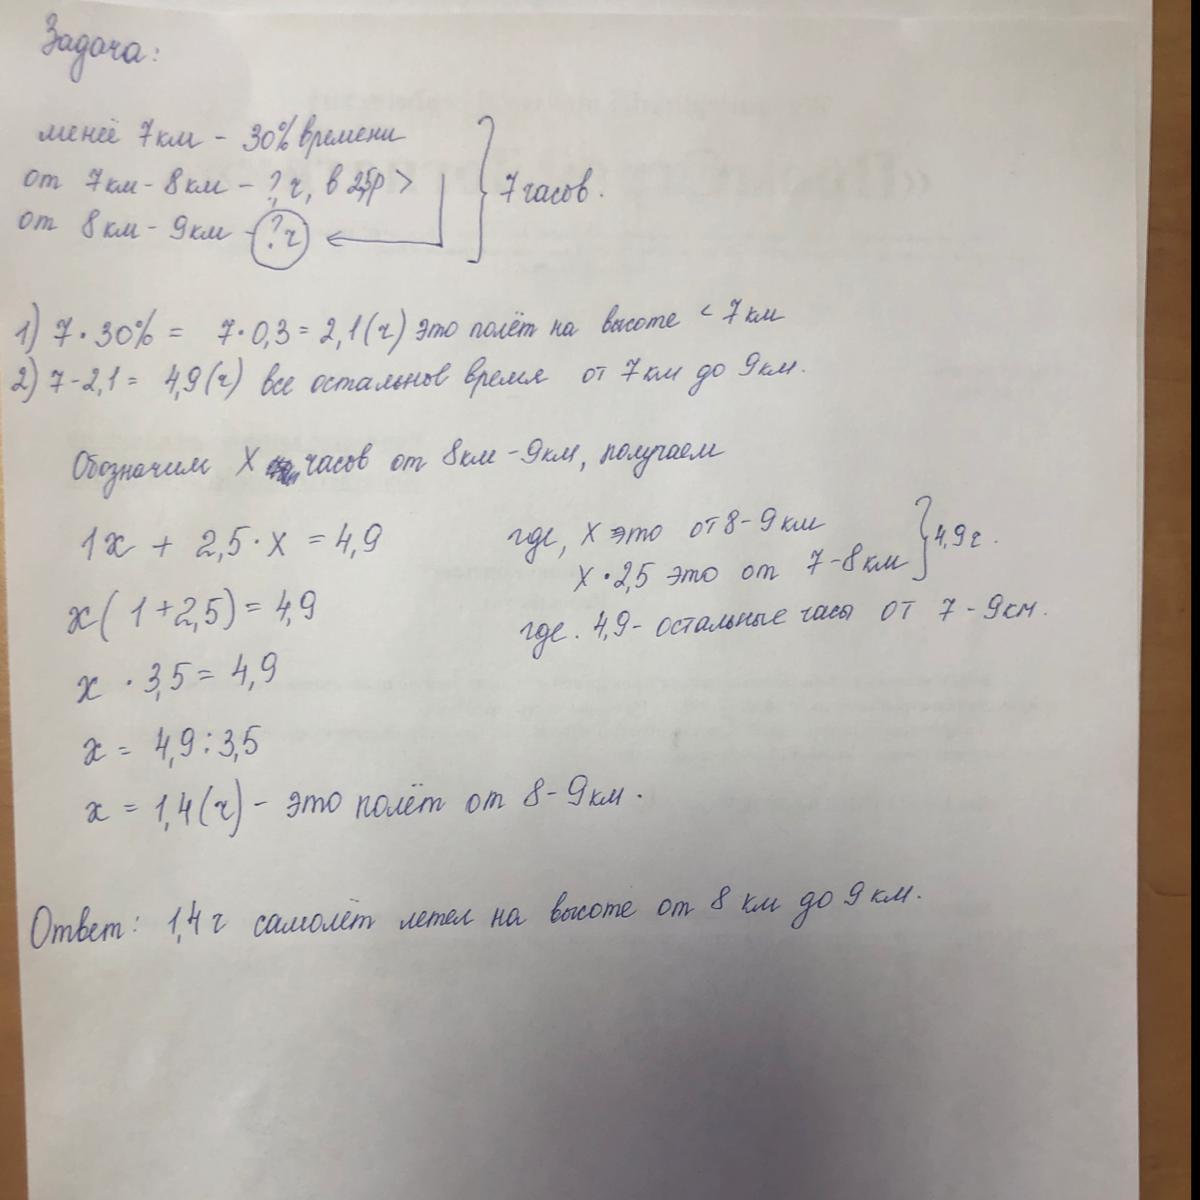 Задача:
менее 7км - 30% времени
от 7км - 8км - ? ч, в 2,5р >
от 8км - 9км - ? ч
7 часов.
1) 7 · 30% = 7 · 0,3 = 2,1 (ч) это полёт на высоте < 7 км
2) 7 - 2,1 = 4,9 (ч) все остальное время от 7 км до 9 км.
Обозначим X часов от 8км - 9км, получаем
1x + 2,5 · x = 4,9
где, x это от 8 - 9 км
x · 2,5 это от 7 - 8 км
4,9 ч.
x (1 + 2,5) = 4,9
где. 4,9 - остальные часы от 7 - 9 км.
x · 3,5 = 4,9
x = 4,9 : 3,5
x = 1,4 (ч) - это полёт от 8 - 9 км.
Ответ: 1,4 ч самолёт летел на высоте от 8 км до 9 км.